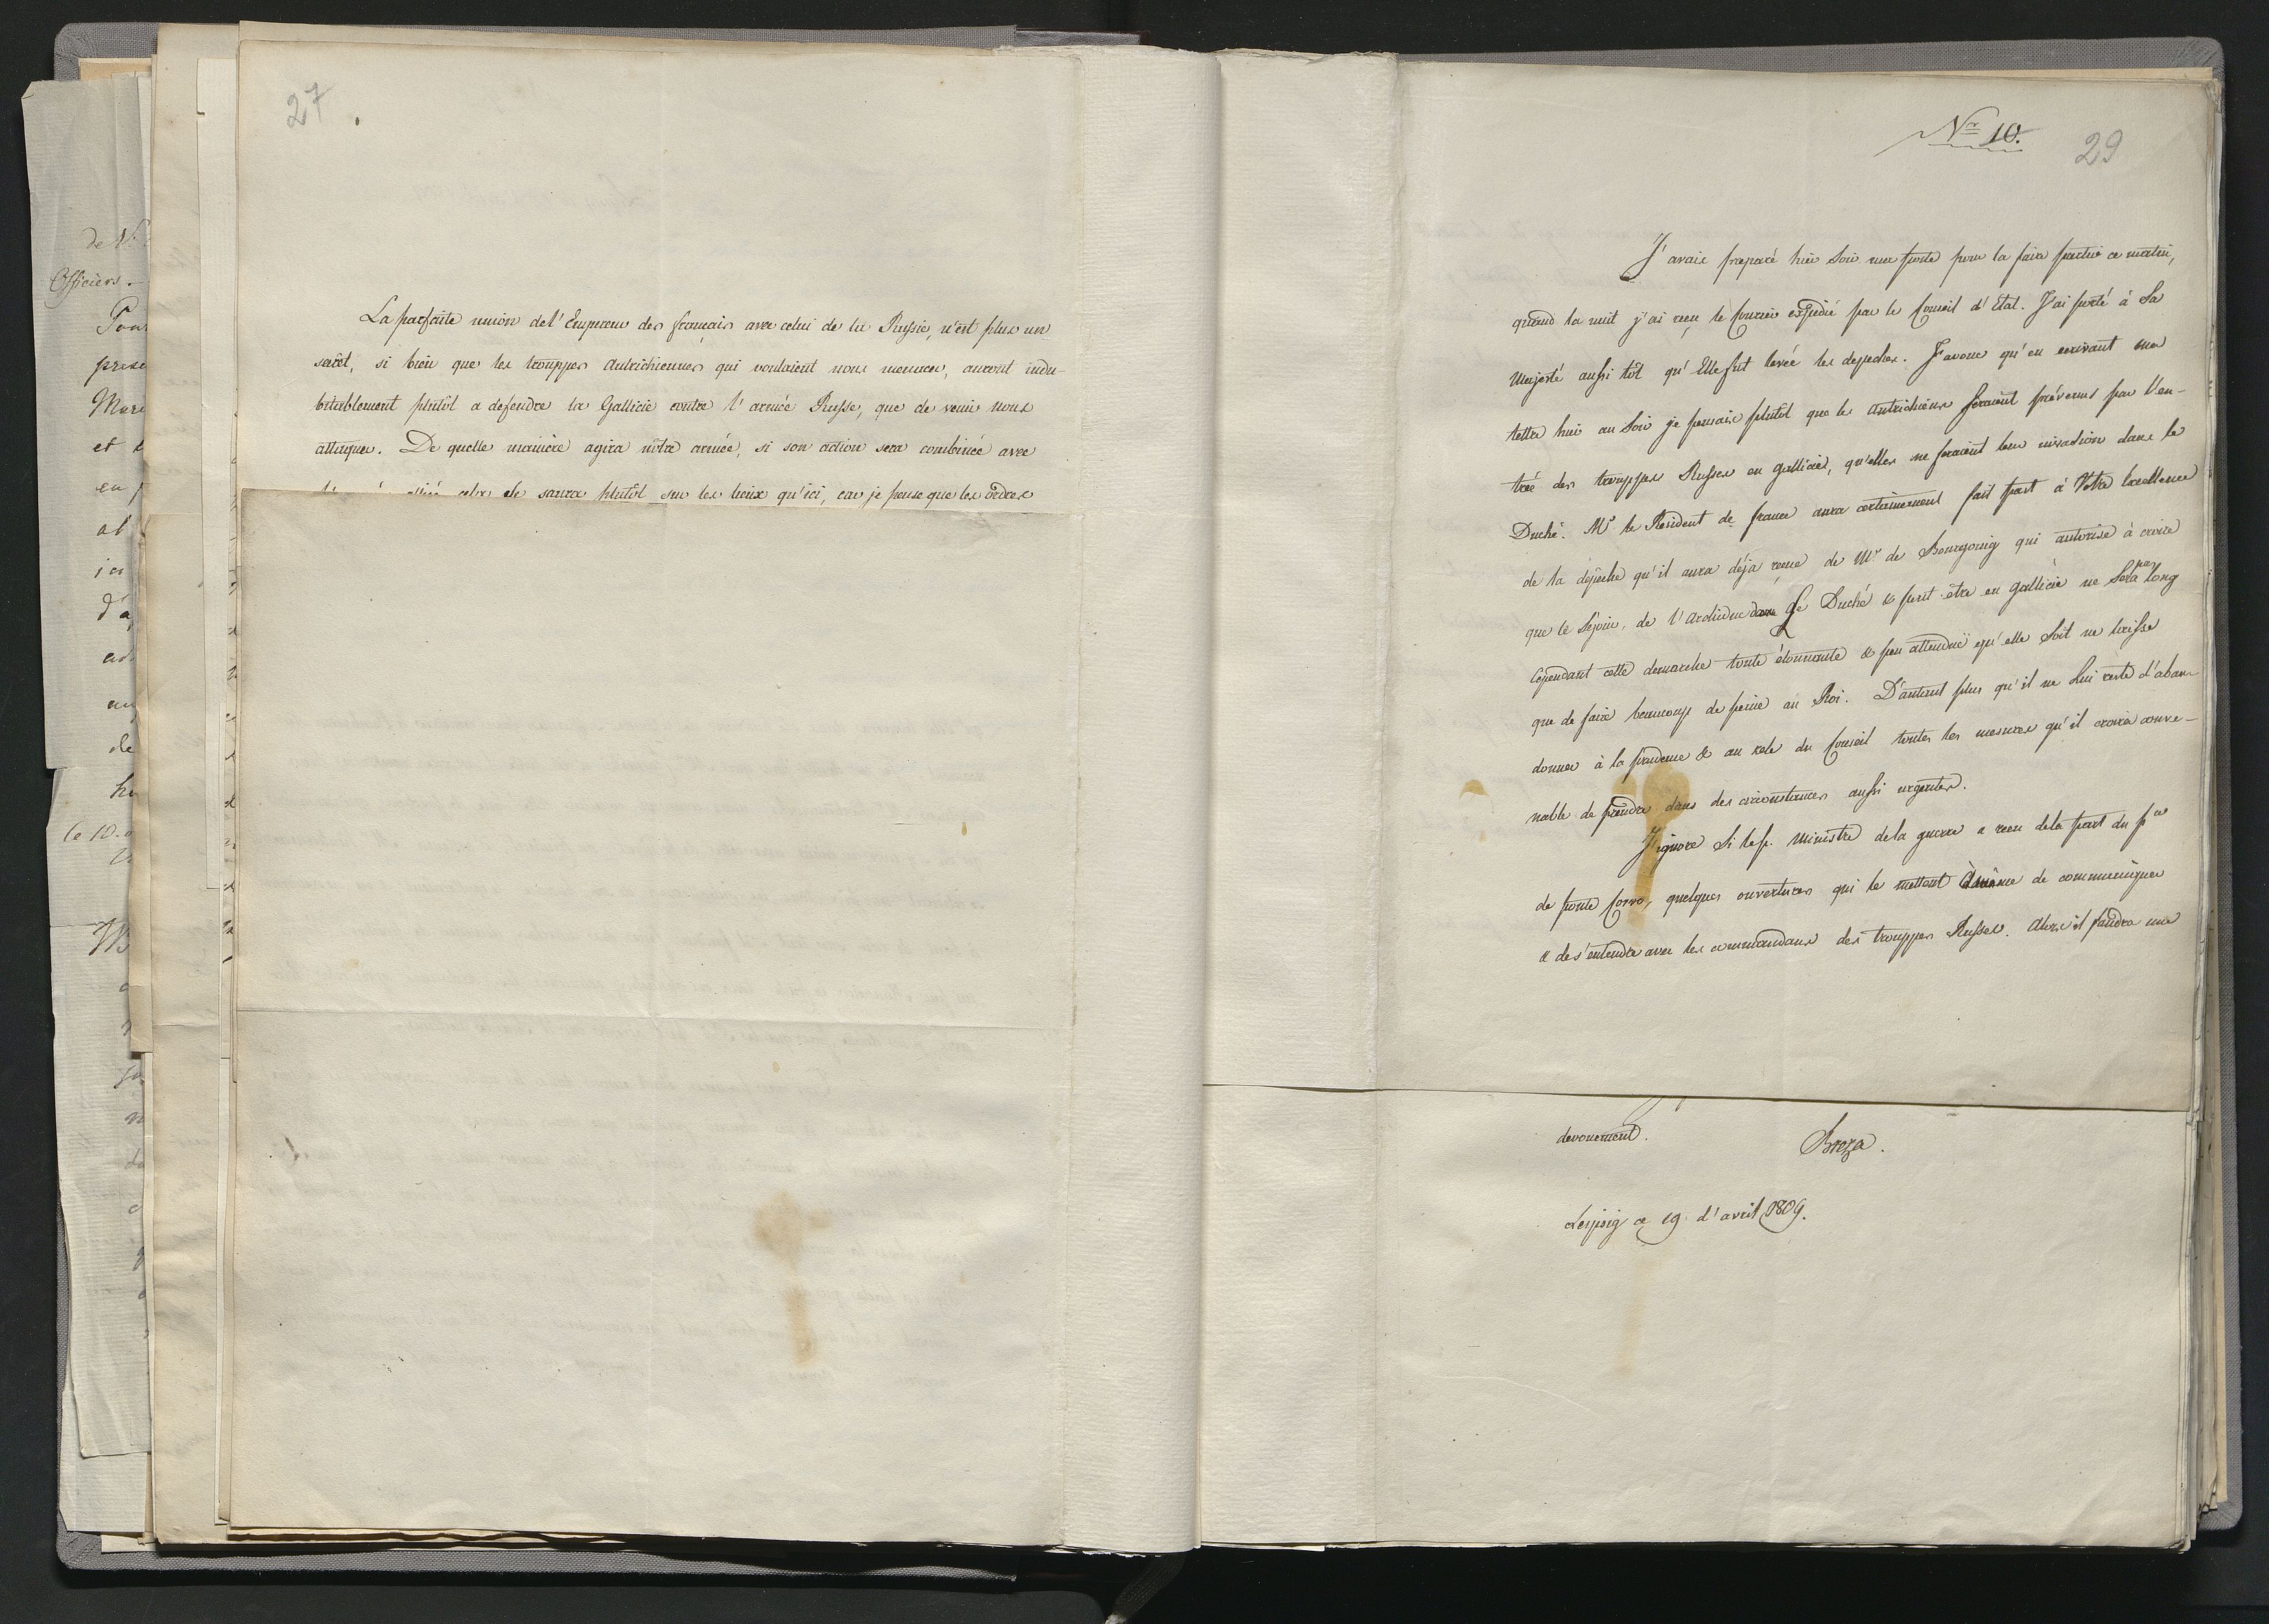 27.
La parfaite union de l'Empereur des français avec celui de la Russie, n'est plus un
secret, si bien que les trouppes Autrichiennes qui voulaient nous menacer, auront indu-
bitablement plutôt a defendre la Gallicie contre l'armée Russe, que de venir nous
attaquer. De quelle manière agira nôtre armée, si son action sera combinée avec
celui se saura plutôt sur les lieux qu'ici, car je pense que les ordres
de V.
Officiers.
pres
Mar
et
en
le 10.
Nr 10.
29
J'avais preparé hier Soir une poste pour la faire partir ce matin,
quand la nuit j'ai reçu le Courier expédié par le Conseil d'Etat. J'ai porté à Sa
Majesté aussi tôt qu'Elle fut levée les depeches. J'avoue qu'en ecrivant ma
lettre hier au Soir je pensais plutôt que les Autrichiens seraient prévenus par l'en-
trée des trouppes Russes en Gallicie, qu'elles ne feraient leur invasion dans le
Duché. Mr le Resident de france aura certainement fait part à Votre Excellence
de la depeche qu'il aura déja reçue de Mr de Bourgoing qui autorise à croire
que le Séjour, de l'Archiduc dans le Duché & peut être en Gallicie ne Sera pas long
Cependant cette demarche toute étonnante & peu attendue qu'elle Soit ne laisse
que de faire beaucoup de peine au Roi. D'autant plus qu'il ne Lui reste d'aban-
donner à la prudence & au zele du Conseil toutes les mesures qu'il croira conve-
nable de prendre dans des circonstances aussi urgentes.
J'ignore Si le P. Ministre de la guerre a reçu de la part du Pce
de Ponte Corvo, quelques ouvertures qui le mettent à même de communiquer
& de s'entendre avec les commandans des trouppes Russes. Alors il faudra une
devouement.
Breza.
Leipsig ce 19 d'avril 1809.